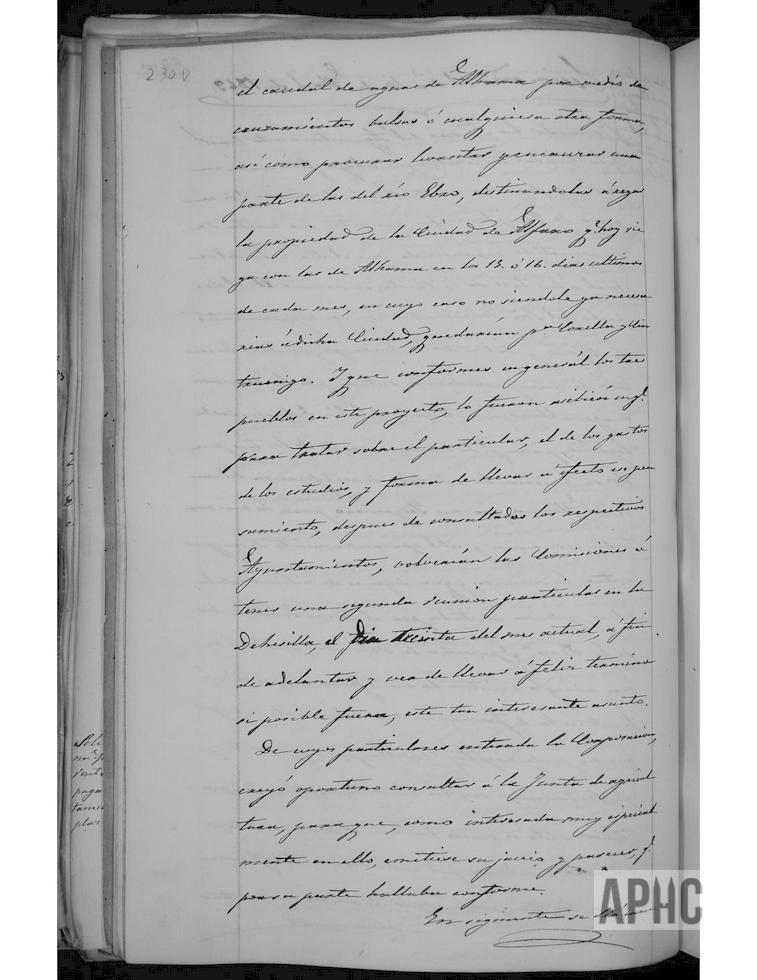 230v
el caudal de aguas de Alhama por medio de
cruzamientos balsas ó cualquiera otra forma,
así como procurar levantar y encauzar una
parte de las del río Ebro, destinandolas á regar
la propiedad de la Ciudad de Alfaro q.e hoy rie
ga con las de Alhama en los 15. ó 16. dias ultimos
de cada mes, en cuyo caso no siendole ya necesa
rias á dicha Ciudad, quedarían p.a Corella y Cin
truenigo. Y que conformes en generál los tres
pueblos en este proyecto,
para tratar sobre el particular, el de los gastos
de los estudios, y forma de llevar á efecto ese pen
samiento, despues de consultados los respectivos
Ayuntamientos, volverían las Comisiones á
tener una segunda reunion particular en la
Dehesilla, el Dia treinta del mes actual, á fin
de adelantar y ver de llevar á feliz termino
si posible fuera, este tan interesante asunto.
De cuyos particulares enterada la Corporacion,
creyó oportuno consultar á la Junta de agricul
tura, para que, como interesada muy especial
mente en ello, emitiese su juicio y parecer, q.
por su parte hallaba conforme.
En siguiente se dió
APHC